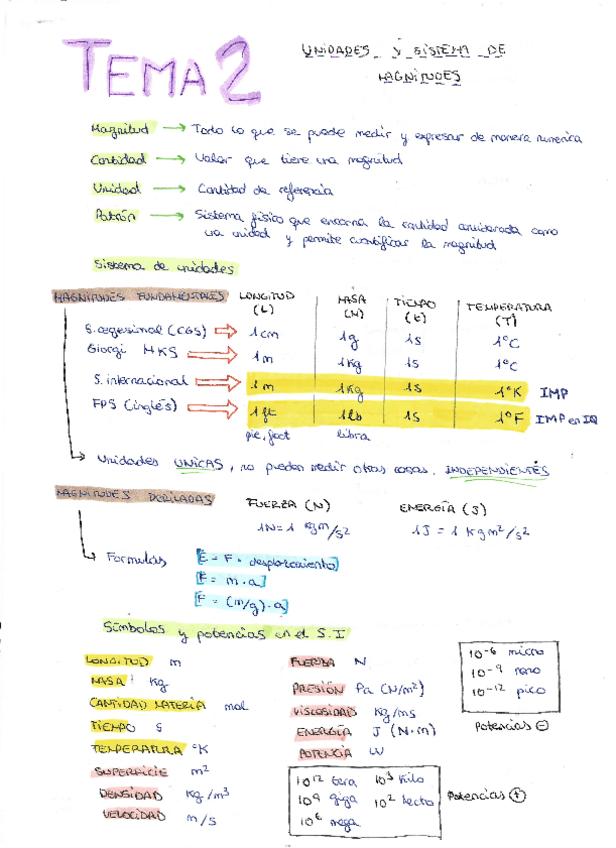 TEMA 2
UNIDADES Y SISTEMA DE
MAGNITUDES
Magnitud → Todo lo que se puede medir y expresar de manera numerica
Cantidad → Valor que tiene una magnitud
Unidad → Cantidad de referencia
Patrón → Sistema físico que encarna la cantidad considerada como
una unidad y permite cuantificar la magnitud
Sistema de unidades
MAGNITUDES FUNDAMENTALES LONGITUD MASA TIEMPO TEMPERATURA
(L) (M) (t) (T)
S. cegesimal (CGS) 1 cm 1g 1s 1°C
Giorgi MKS 1 m 1Kg 1s 1°C
S. internacional 1 m 1Kg 1s 1°K IMP
FPS (inglés) 1 ft 1lb 1s 1°F IMP en IQ
pie, foot libra
Unidades UNICAS, no pueden medir otras cosas. INDEPENDIENTES
MAGNITUDES DERIVADAS FUERZA (N) ENERGÍA (J)
1N = 1 kgm/s² 1J = 1 Kgm²/s²
Formulas E = F · desplazamiento
F = m · a
F = (m/g) · a
Símbolos y potencias en el S.I
LONGITUD m
MASA Kg
CANTIDAD MATERIA mol
TIEMPO s
TEMPERATURA °K
SUPERFICIE m²
DENSIDAD kg/m³
VELOCIDAD m/s
FUERZA N
PRESIÓN Pa (N/m²)
VISCOSIDAD Kg/ms
ENERGÍA J (N·m)
POTENCIA W
10⁻⁶ micro
10⁻⁹ nano
10⁻¹² pico
Potencias ⊖
10¹² tera 10³ Kilo
10⁹ giga 10² hecto
10⁶ mega
Potencias ⊕